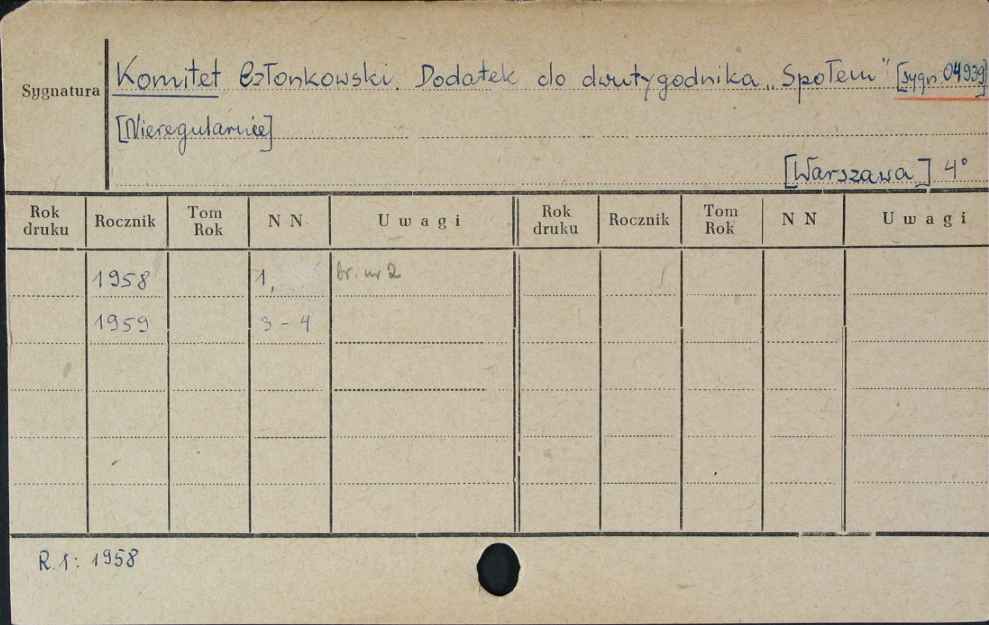 Sygnatura
Komitet Członkowski. Dodatek do dwutygodnika „Społem” [sygn. 04939]
[Nieregularnie]
[Warszawa] 4°
Rok druku Rocznik Tom Rok N N Uwagi Rok druku Rocznik Tom Rok N N Uwagi
1958 1, br. nr 2
1959 3-4
R. 1: 1958